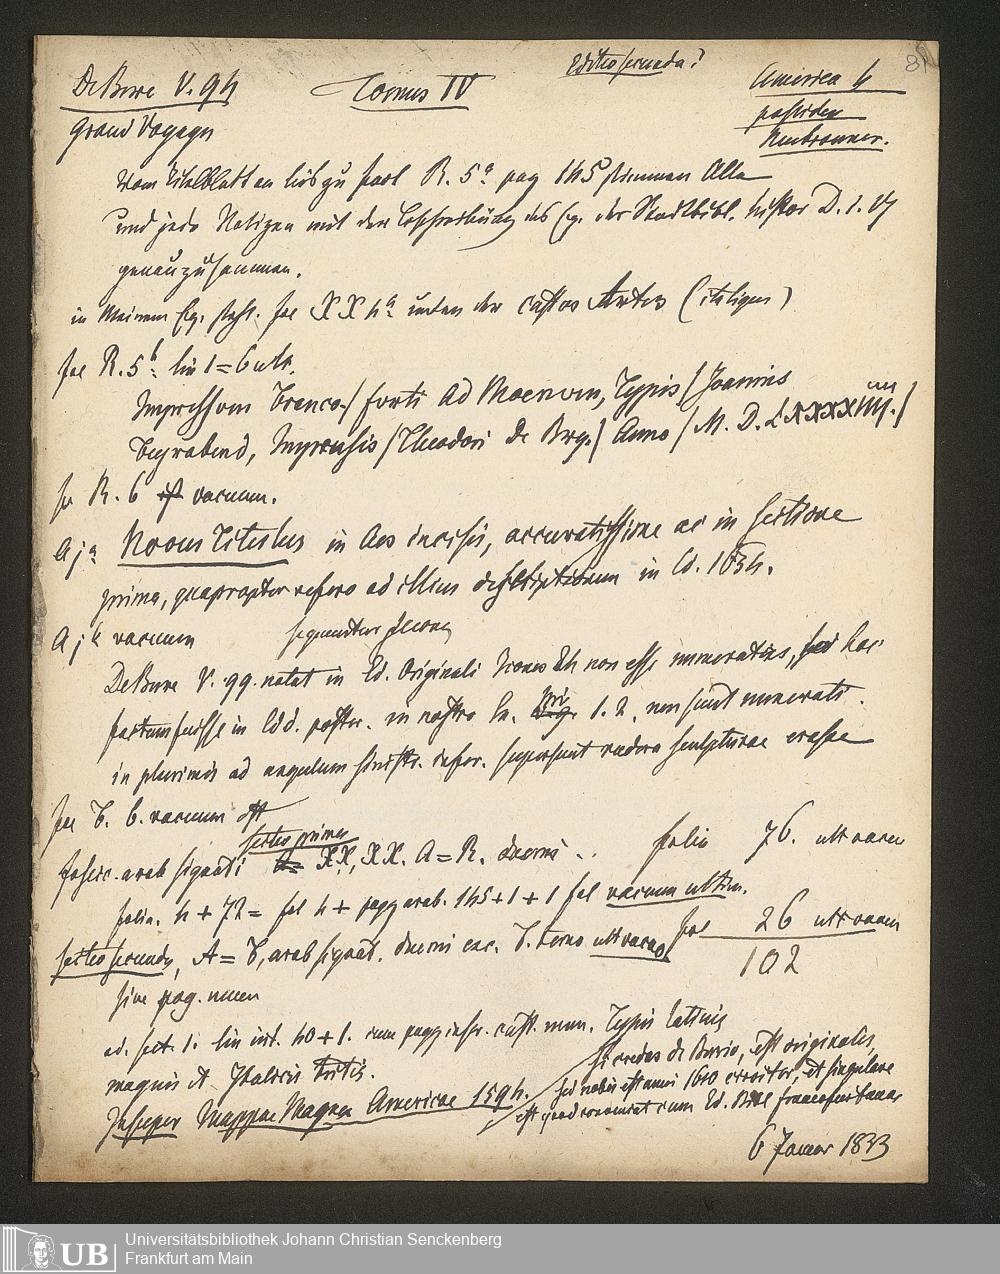 Editio secunda?
81
De Bure V. 94
Tomus IV
America 4
Grand Voyages
possidea
Neubronner.
Vom Titelblatt an bis zu fol R. 5a pag 145 stimmen Alle
und jede Notizen mit der Beschreibung des Ex. der Stadtbibl. histor D. 1. 17
genau zusammen.
in Meinem Ex. steht. fol XX 4a unten der custos Artes (italiques)
fol R. 5b: lin 1=6 ult.
Impressum Franco-/ furti Ad Moenum, Typis / Joannis
Feyrabend, Impensis / Theodori De Bry / Anno / M. D. LXXXXIIII. /
fo R. 6 vacuum.
A ja Novus Titulus in Aes incisus, accuratissime ac in sectione
prima, quapropter refero ad illius descriptionem in Ed. 1634.
A jb vacuum sequuntur Icones
De Bure V. 99. notat in Ed. Originali Icones 24 non esse numeratas, hoc
factum fuisse in Edd. poster. in nostro Ex. 1. 2. non sunt numerati.
in plurimis ad angulum sinistr. infer. supersunt rudera sculpturae erasae
fol F. 6. vacuum est
sectio prima
fascic. arab signati XX, XX. A=R. duerni .. folia 76. ult vacu
folia. 4 + 72 = fol 4 + pagg arab. 145+1+1 fol vacuum ultim.
sectio secunda, A=F, arab signat. duerni exc. F. terno ult vacuo fol 26 ult vacu
102
sive pag. num
ad. sect. 1. lin int. 40+1. cum pagg infer. cust. num. Typis latinis
magnis et Italicis
Insuper Mappae Magna Americae 1594.
si credas de Burio, est originalis,
sed nobis est anni 1610 et singulare
est quod convenit cum Ed.
6 Januar 1833
UB
Universitätsbibliothek Johann Christian Senckenberg
Frankfurt am Main